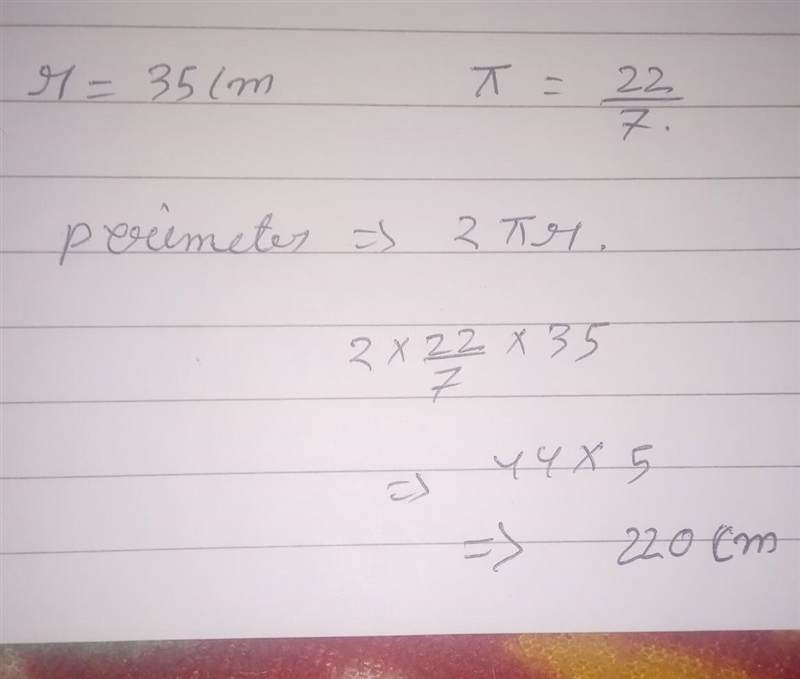 r = 35 cm π = 22/7.
perimeter => 2πr.
2 × 22/7 × 35
=> 44 × 5
=> 220 cm